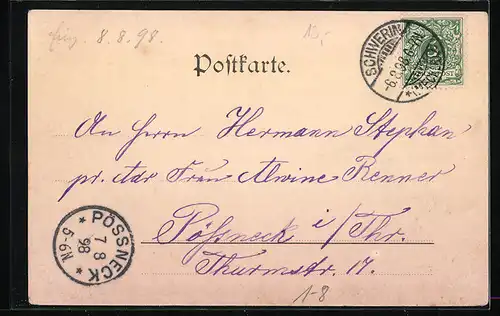 8.8.98.
15,-
Postkarte.
SCHWERIN
6.8.98
(MECKLB)
An Herrn Hermann Stephan
pr. adr Frau Alwine Renner
Pößneck i/Thr.
Thurmstr. 17.
PÖSSNECK
7 8
98
5-6N
1-8